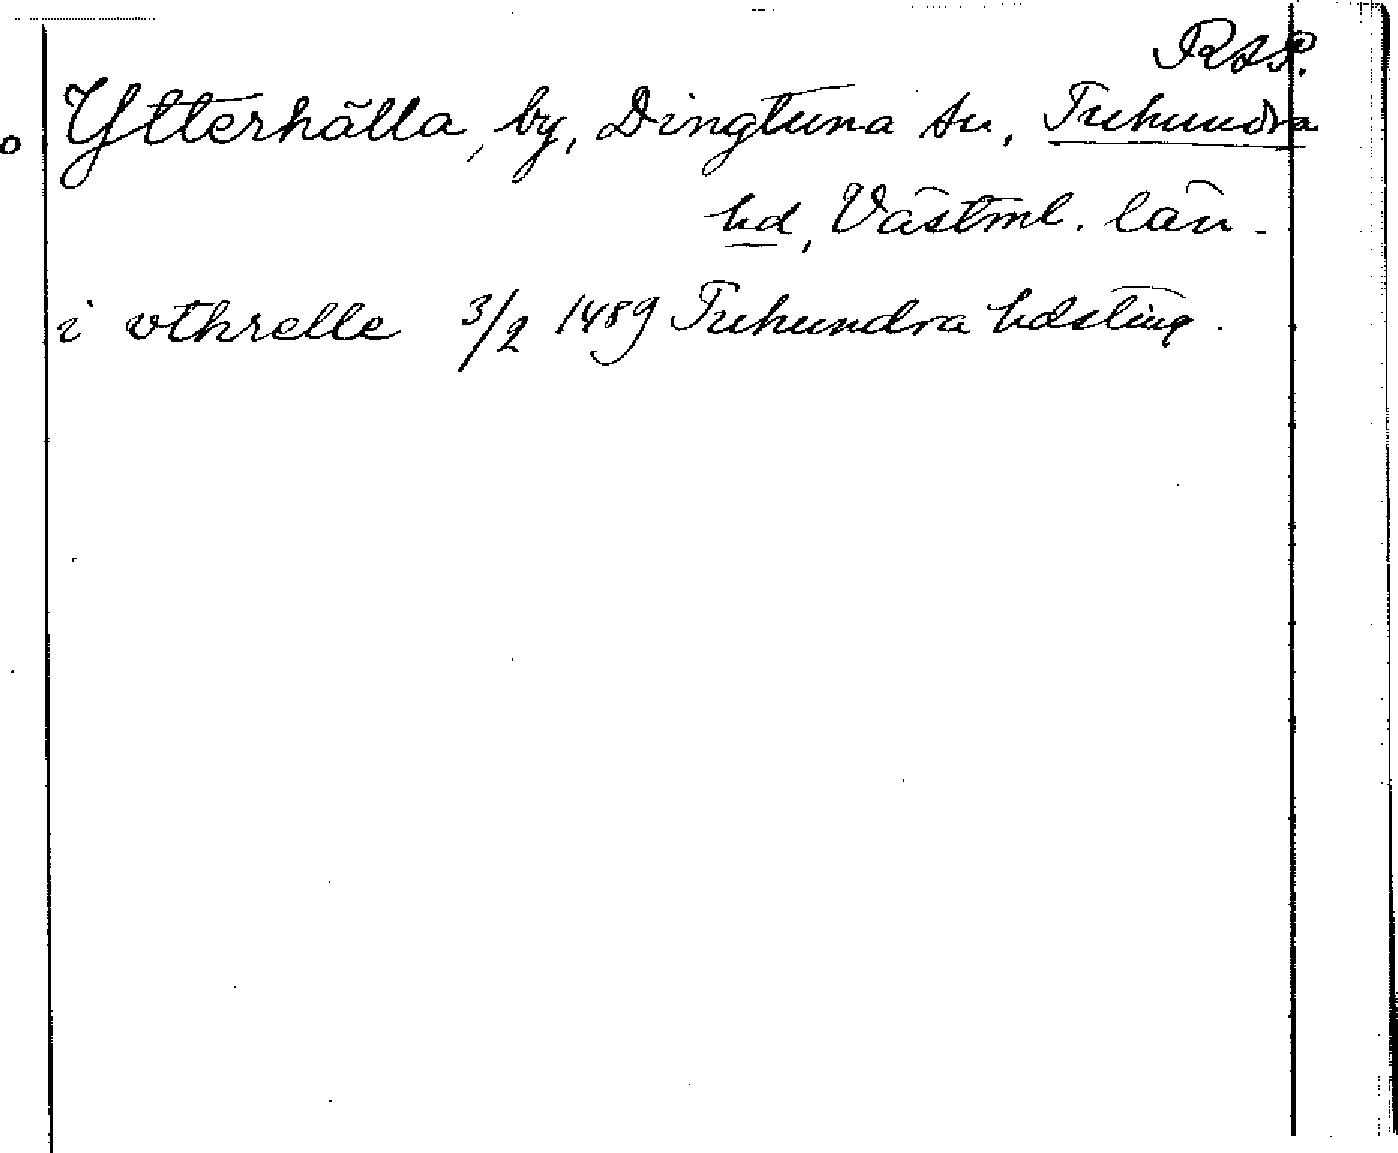 RAP.
o Ytterhälla, by, Dingtuna sn, Tuhundra
hd, Västml. län.
i vthrelle 3/2 1489 Tuhundra hdsting.